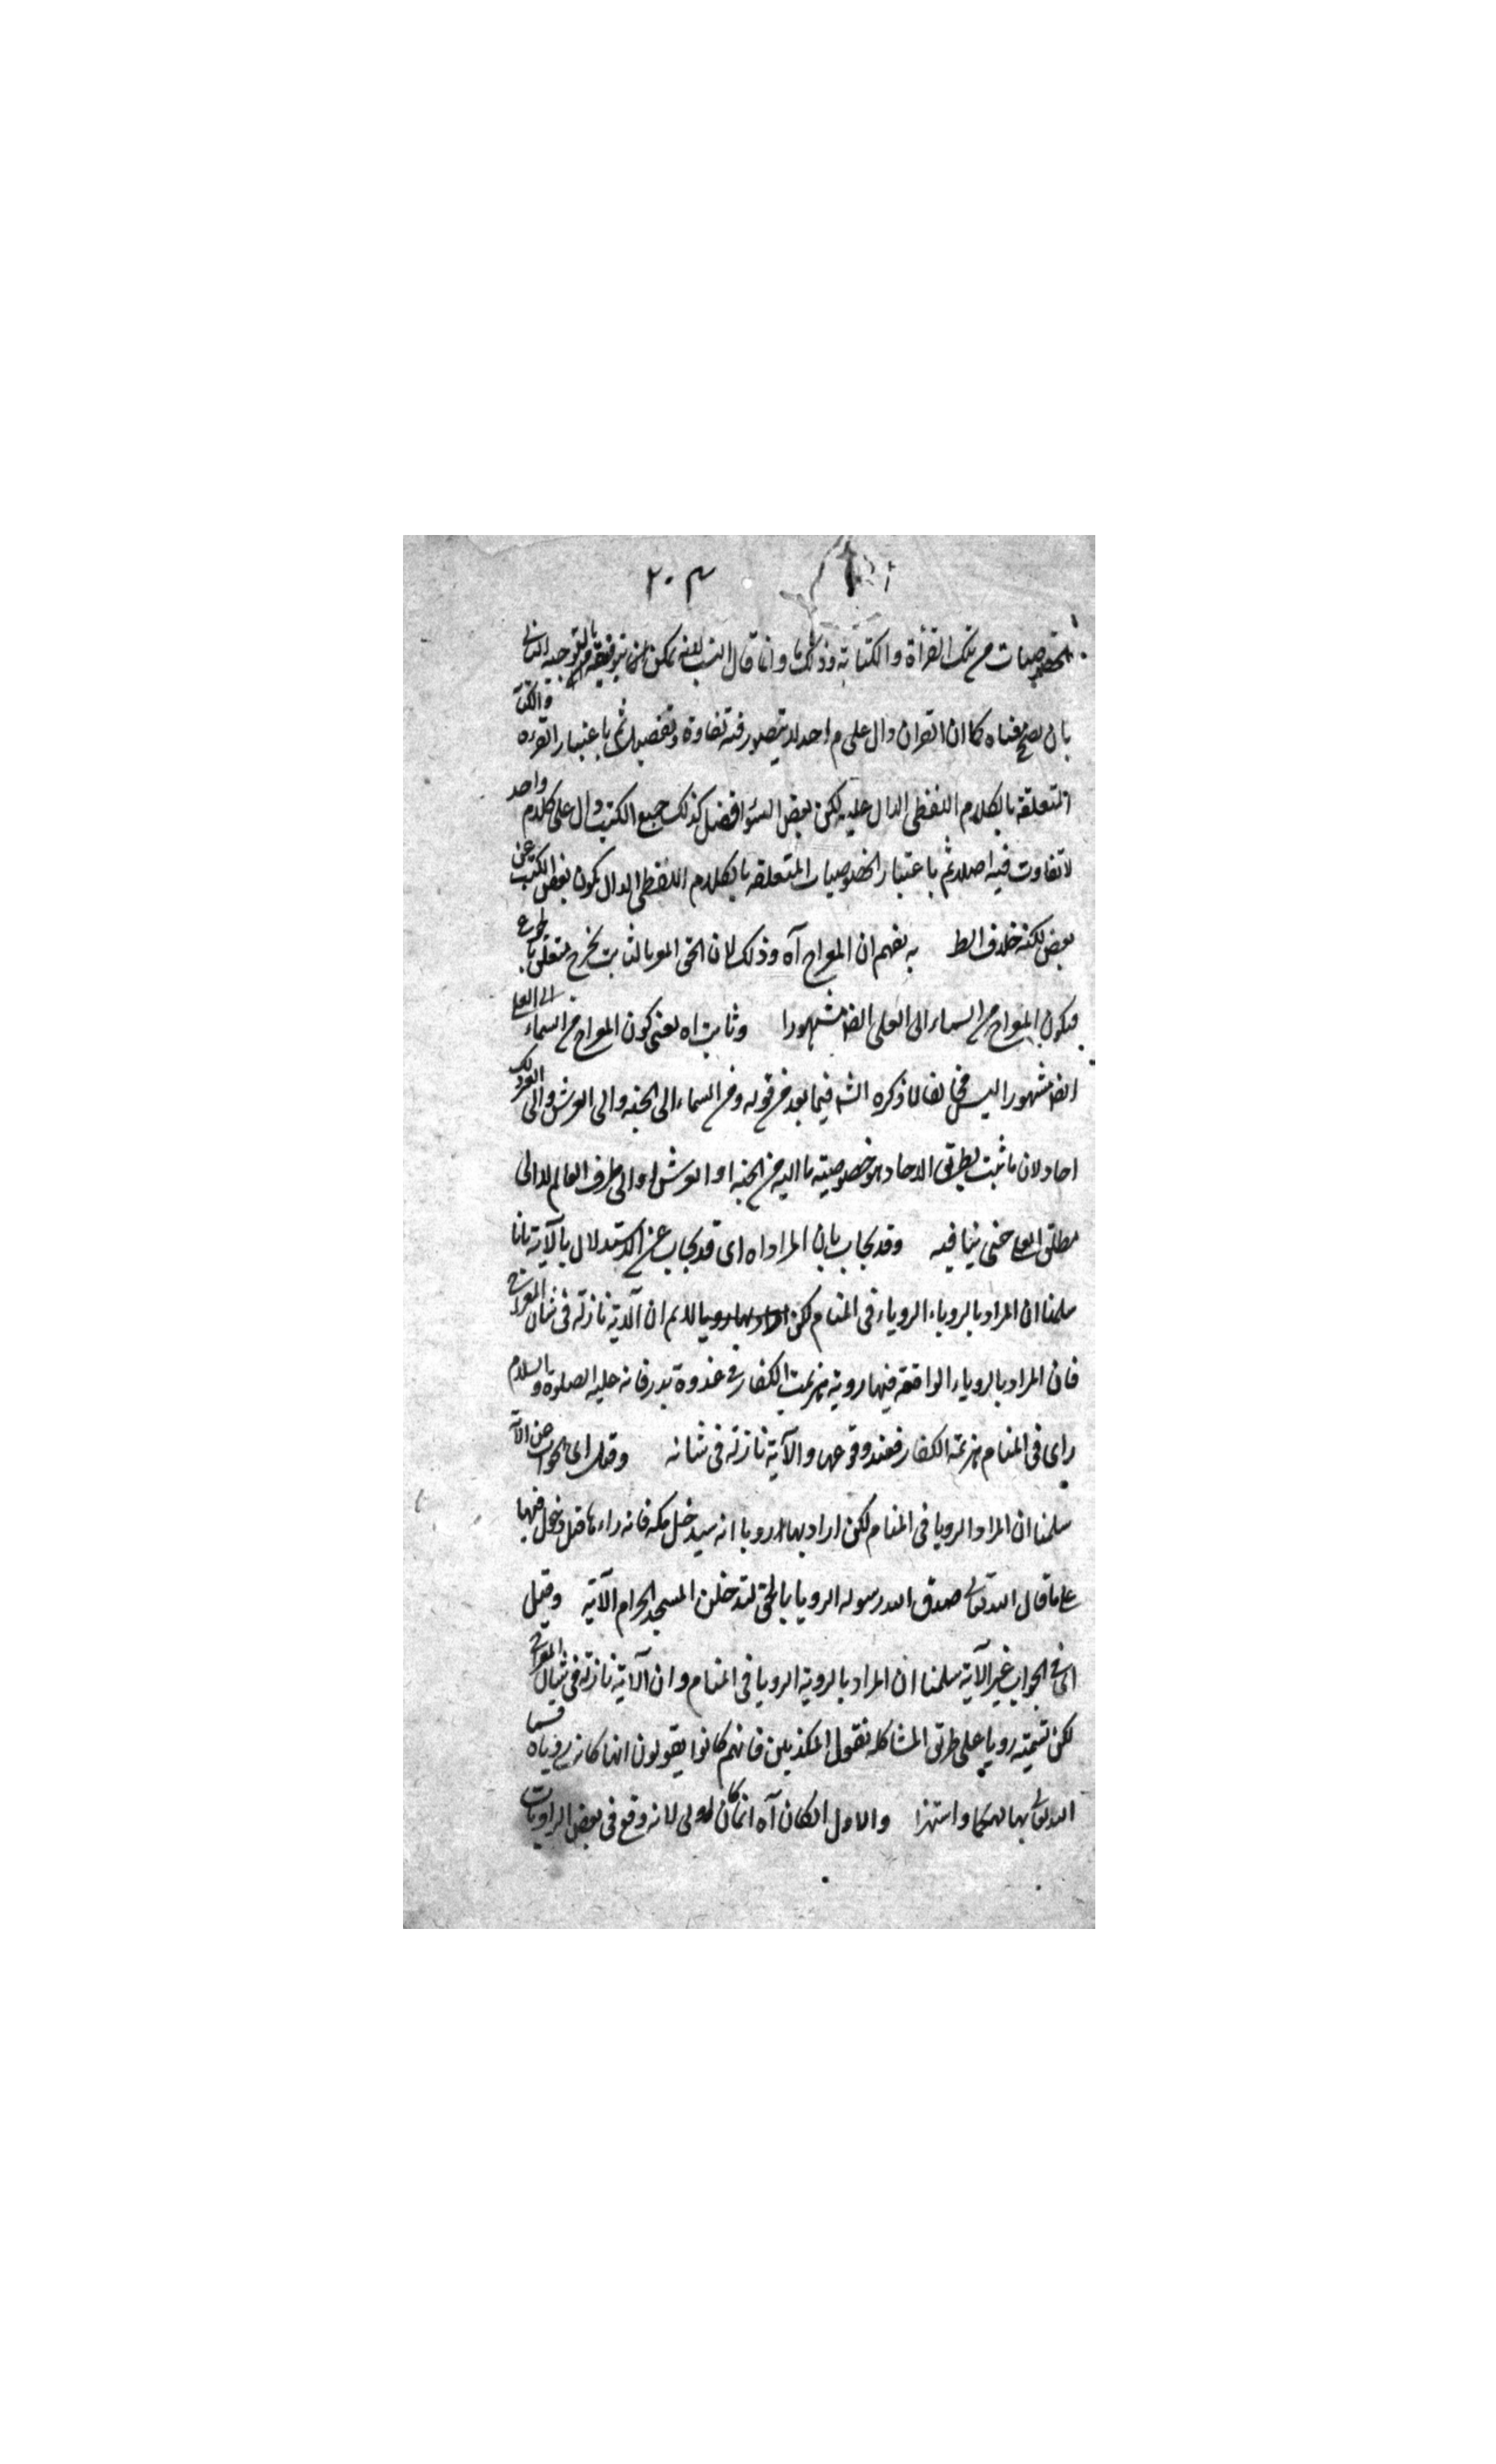 ٢٠٣
الخصوصيات من تلك القرأة والكتابة وذكرها وانما قال انسب لانه يمكن بالتوجيه الثاني
بان يصح معناه كما ان القران دال على م واحد لا يتصور فيه تفاوة وتفضيل ثم باعتبار القرءه والكتا
المتعلقه بالكلام اللفظى الدال عليه لكن بعض السور افضل كذلك جميع الكتب دال على كلام واحد
لا تفاوت فيه اصلا ثم باعتبار الخصوصيات المتعلقه بالكلام اللفظى الدال يكون بعض الكتب عن
بعض لكنه خلاف الظ به يفهم ان المعراج آه وذلك لان الحق المو بالثابت بخرج متعلق
فيكون المعراج من السماء الى العلى ايضا مشهورا وثابت اه يعنى كون المعراج من السماء الى العلى
ايضا مشهورا ليس مخالفا لما ذكره الشه فيما بعد من قوله ومن السماء الى الجنه والى العرش والى
احاد لان ما ثبت بطريق الاحاد هو خصوصيته ما اليه من الجنه او العرش او الى طرف العالم لا الى
مطلق العلى حتى ينافيه وقد يجاب بان المراد اه اى قد يجاب عن الاستدلال بالآية بانا
سلمنا ان المراد بالروياء الروياء فى المنام لكن لا نم ان الآية نازلة فى شان المعراج
فان المراد بالروياء الواقعة فيها روية هزيمت الكفار فى غزوة بدر فانه عليه الصلوة والسلام
راى فى المنام هزيمة الكفار فعند وقوعها والآية نازلة فى شانه وقيل اى الجواب عن الآ
سلمنا ان المراد الرويا فى المنام لكن اراد بها رويا انه سيدخل مكه فانه راءها قبل دخول فيها
على ما قال الله تعالى صدق الله رسوله الرويا بالحق لتدخلن المسجد الحرام الآية وقيل
اى فى الجواب غير الآية سلمنا ان المراد بالروية الرويا فى المنام وان الآية نازلة فى شان المعراج
لكن تسميته رويا على طريق المشاكله بقول المكذبين فانهم كانوا يقولون انها كانت روياه فسما
الله تعالى بها تهكما واستهزا والاول الكان آه انما كان اولى لانه وقع فى بعض الراويات